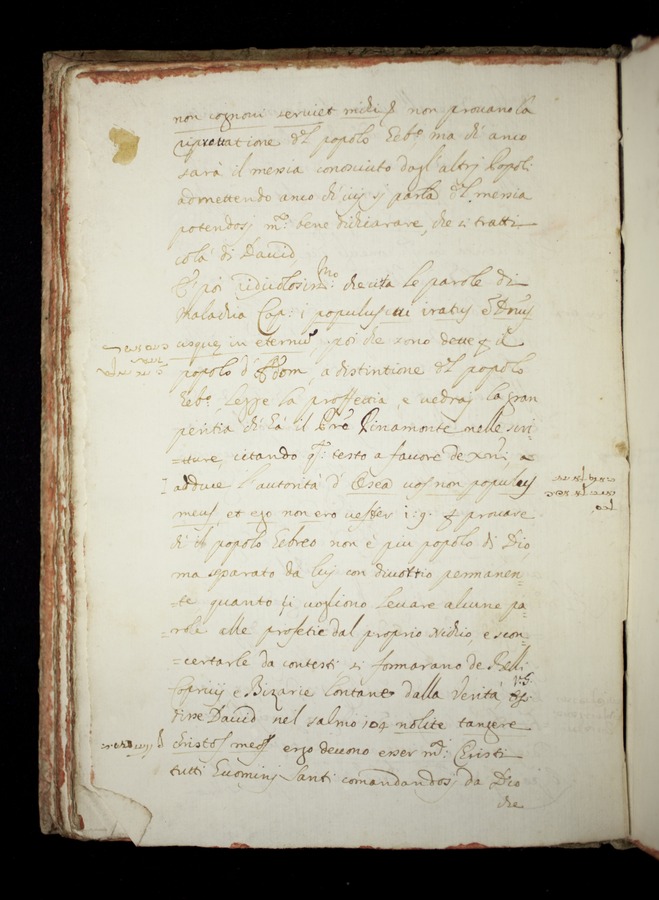 non cognoui seruiet mihi & non prouano la
riprouatione del popolo Eebº ma di anco
sarà il messia conosciuto dagl'altri Popoli
admettendo anco di iui si parla del messia
potendosi mº bene dichiarare, che si tratti
colà di Dauid
È poi ridicolosissmo che cita le parole di
Malachia Cap: i populus cui iratus e Dnus
usque in eternu, poi che sono dette p il
popolo d'Edom, a distintione del popolo
Eebº, legge la proffettia, e uedraj la gran
peritia di là il Pre Pinamonte nelle scri-
-tture, citando qº testo a fauore de xni, e
adduce l'autorità d' Osea uos non populus
meus, et ego non ero uester i: 9. p prouare
di il popolo Eebreo non è piu popolo di Dio
ma separato da luj con diuortio permanen-
-te quanto si uogliono leuare alcune pa-
-role alle profetie dal proprio nichio, e scon-
-certarle da contesti si formarano de Belli
Capricij e Bizarie lontane dalla Verità,
disse Dauid nel salmo 104 nolite tangere
christos meos ergo deuono esser mº Cristi
tutti Euominj Santi comandandosj da Dio
che